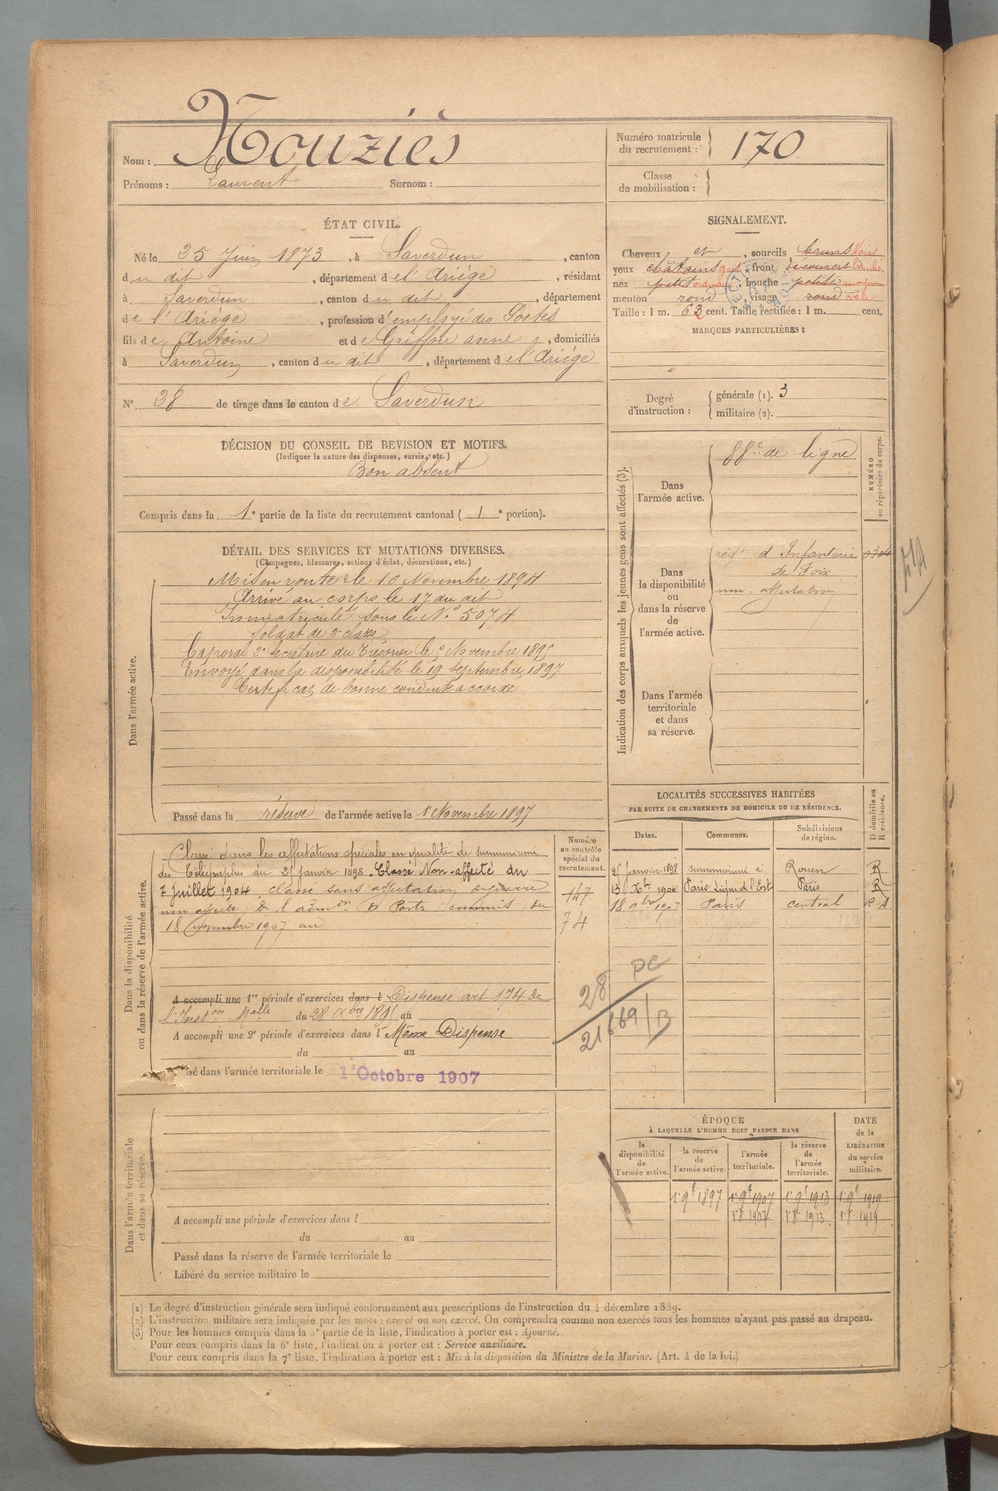 Nom : Nouziès
Prénoms : Laurent Surnom :
Numéro matricule du recrutement : 170
Classe de mobilisation :
ÉTAT CIVIL.
Né le 25 Juin 1873, à Saverdun, canton
du dit, département de l'Ariège, résidant
à Saverdun, canton du dit, département
de l'Ariège, profession d'employé des Postes
fils de Antoine et de Griffou anne, domiciliés
à Saverdun, canton du dit, département de l'Ariège
N° 28 de tirage dans le canton de Saverdun
SIGNALEMENT.
Cheveux et, sourcils bruns Noirs
yeux châtains gris, front découvert
nez petit, bouche petite moyenne
menton rond, visage rond
Taille : 1 m. 62 cent. Taille rectifiée : 1 m. cent.
MARQUES PARTICULIÈRES :
Degré d'instruction : générale (1). 3
militaire (2).
DÉCISION DU CONSEIL DE REVISION ET MOTIFS.
(Indiquer la nature des dispenses, sursis, etc.)
Bon absent
Compris dans la 1e partie de la liste du recrutement cantonal (1e portion).
DÉTAIL DES SERVICES ET MUTATIONS DIVERSES.
(Campagnes, blessures, actions d'éclat, décorations, etc.)
Dans l'armée active.
Mis en route le 16 Novembre 1894
Arrivé au corps le 17 du dit
Immatriculé sous le N° 5074
Soldat de 2e classe
Caporal 2e secrétaire du Trésorier le 5 Novembre 1895
Envoyé dans la disponibilité le 19 Septembre 1897
Certificat de bonne conduite accordé
Passé dans la réserve de l'armée active le 1 Novembre 1897
Indication des corps auxquels les jeunes gens sont affectés (3).
NUMÉRO au répertoire du corps.
Dans l'armée active.
88e de ligne
Dans la disponibilité ou dans la réserve de l'armée active.
régt d'Infanterie
de Foix
non affectation
Dans l'armée territoriale et dans sa réserve.
LOCALITÉS SUCCESSIVES HABITÉES
PAR SUITE DE CHANGEMENTS DE DOMICILE OU DE RÉSIDENCE.
Dates. Communes. Subdivisions de région. D domicile ou R résidence.
21 Janvier 1898 Rouen R
1900 Paris Ligne de l'Est Paris R
18 9bre 1907 Paris central R
Dans la disponibilité ou dans la réserve de l'armée active.
Numéro au contrôle spécial du recrutement.
Classé dans les affectations spéciales en qualité de
des Télégraphes du 21 Janvier 1898. Classé Non-affecté du
7 Juillet 1904 classé sans affectation
non affecté de l'admon des Postes commis du
18 novembre 1907 au
147
74
A accompli une 1re période d'exercices dans l Dispensé art 174 de
l'Inston Malle du 28 Xbre 1895 au
A accompli une 2e période d'exercices dans l Même Dispense
du au
sé dans l'armée territoriale le 1er Octobre 1907
28 DC
21669/B
Dans l'armée territoriale et dans sa réserve.
A accompli une période d'exercices dans l
du au
Passé dans la réserve de l'armée territoriale le
Libéré du service militaire le
ÉPOQUE
À LAQUELLE L'HOMME DOIT PASSER DANS
la disponibilité de l'armée active. la réserve de l'armée active. l'armée territoriale. la réserve de l'armée territoriale. DATE de la LIBÉRATION du service militaire.
1r 9e 1897 1r 9e 1907 1r 9e 1913 1r 9e 1919
1r 8e 1907 1r 8e 1913 1r 8e 1919
(1) Le degré d'instruction générale sera indiqué conformément aux prescriptions de l'instruction du 4 décembre 1889.
(2) L'instruction militaire sera indiquée par les mots : exercé ou non exercé. On comprendra comme non exercés tous les hommes n'ayant pas passé au drapeau.
(3) Pour les hommes compris dans la 5e partie de la liste, l'indication à porter est : Ajourné.
Pour ceux compris dans la 6e liste, l'indication a porter est : Service auxiliaire.
Pour ceux compris dans la 7e liste, l'indication à porter est : Mis à la disposition du Ministre de la Marine. (Art. 4 de la loi.)